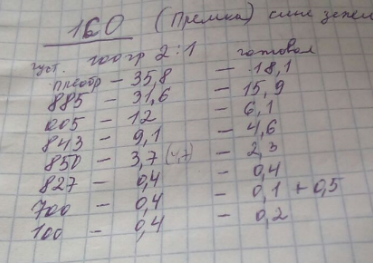 160 (Премка) сине зелен
густ. 100 гр 2:1 готовая
преобр - 35,8 - 18,1
885 - 31,6 - 15,9
005 - 12 - 6,1
843 - 9,1 - 4,6
850 - 3,7 - 2,3
827 - 0,4 - 0,4
700 - 0,4 - 0,1 + 0,5
100 - 0,4 - 0,2